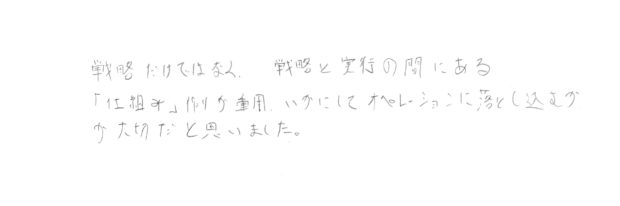 戦略だけではなく、戦略と実行の間にある
「仕組み」作りが重用、いかにしてオペレーションに落とし込むか
が大切だと思いました。